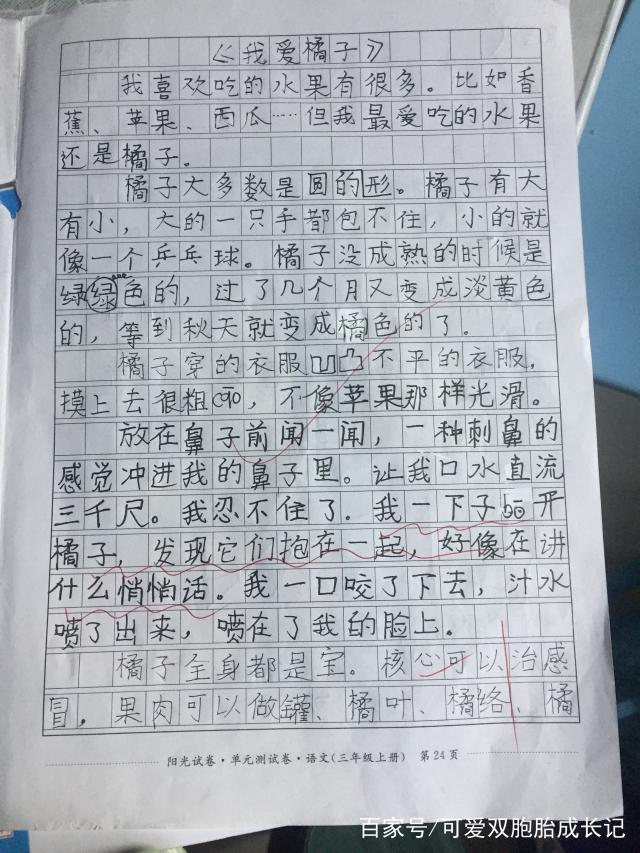 《我爱橘子》
我喜欢吃的水果有很多。比如香
蕉、苹果、西瓜……但我最爱吃的水果
还是橘子。
橘子大多数是圆的形。橘子有大
有小，大的一只手都包不住，小的就
像一个乒乓球。橘子没成熟的时候是
绿绿色的，过了几个月又变成淡黄色
的，等到秋天就变成橘色的了。
橘子穿的衣服凹凸不平的衣服，
摸上去很粗cao，不像苹果那样光滑。
放在鼻子前闻一闻，一种刺鼻的
感觉冲进我的鼻子里。让我口水直流
三千尺。我忍不住了．我一下子bo开
橘子，发现它们抱在一起，好像在讲
什么悄悄话。我一口咬了下去，汁水
喷了出来，喷在了我的脸上。
橘子全身都是宝。核心可以治感
冒，果肉可以做罐、橘叶、橘络、橘
阳光试卷·单元测试卷·语文(三年级上册) 第24页
百家号/可爱双胞胎成长记